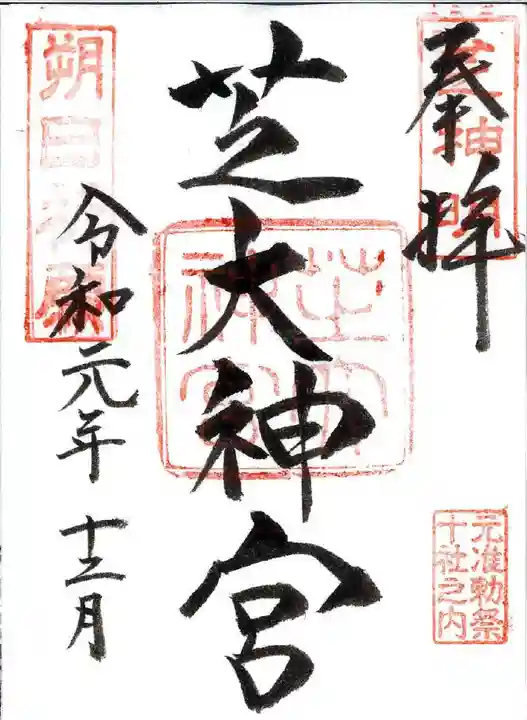 奉拝
芝神明
元准勅祭
十社之内
芝大神宮
芝大
神宮
令和元年 十二月
朔日